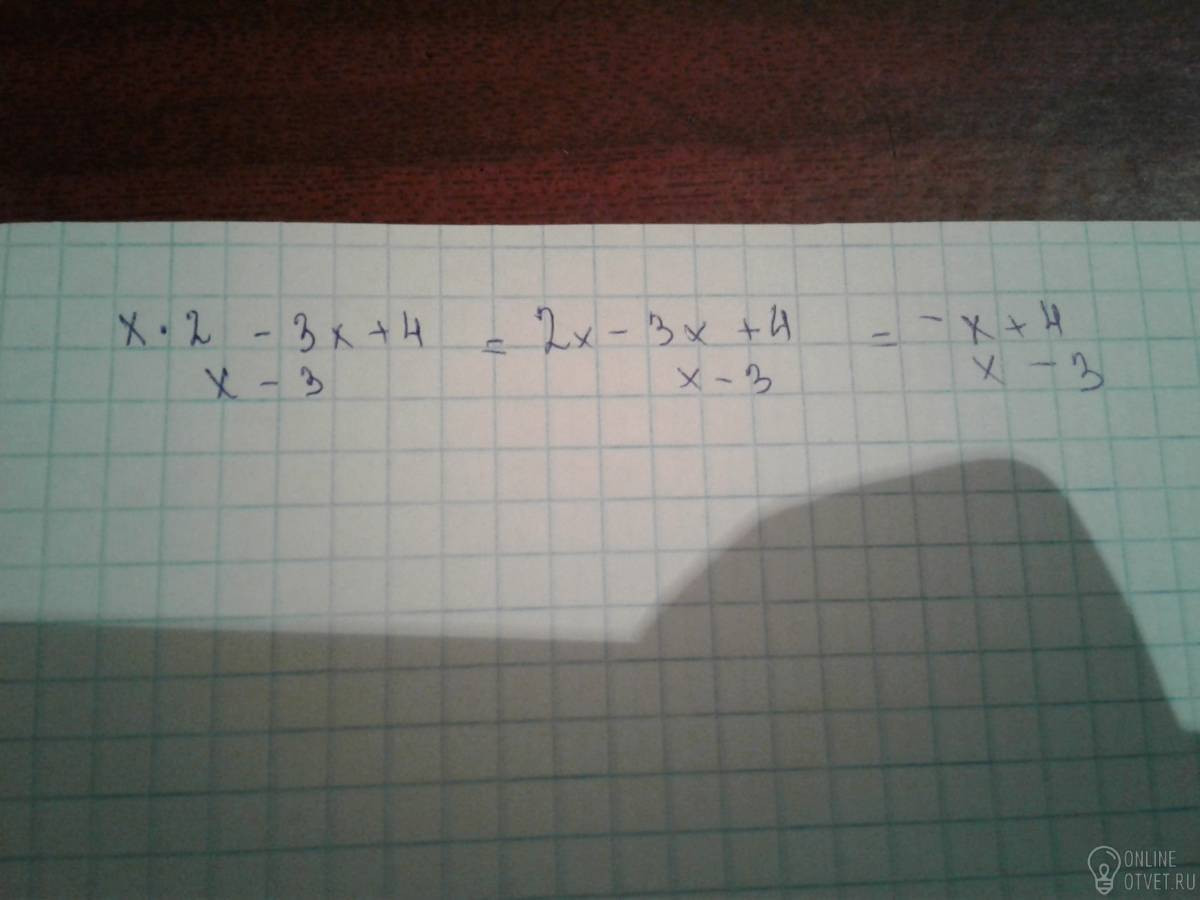 x · 2 - 3x + 4 = 2x - 3x + 4 = - x + 4
x - 3 x - 3 x - 3
ONLINE
OTVET.RU